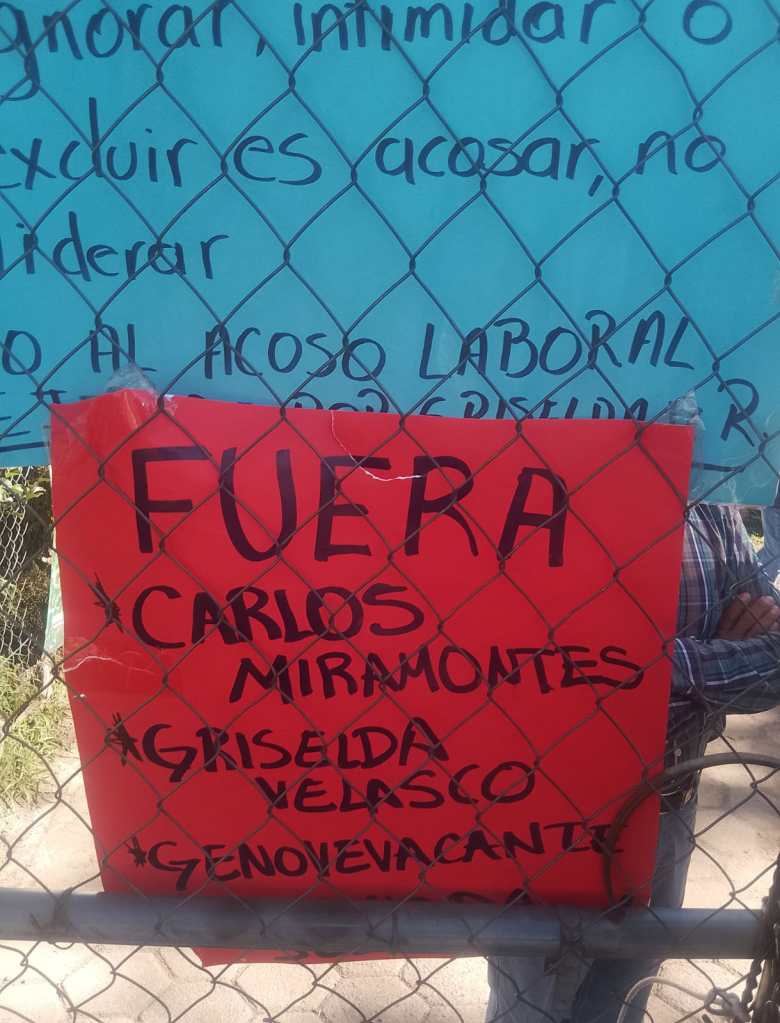 ignorar, intimidar o
excluir es acosar, no
liderar
NO AL ACOSO LABORAL
POR GRISELDA
FUERA
*CARLOS
MIRAMONTES
*GRISELDA
VELASCO
*GENOVEVA CANTE